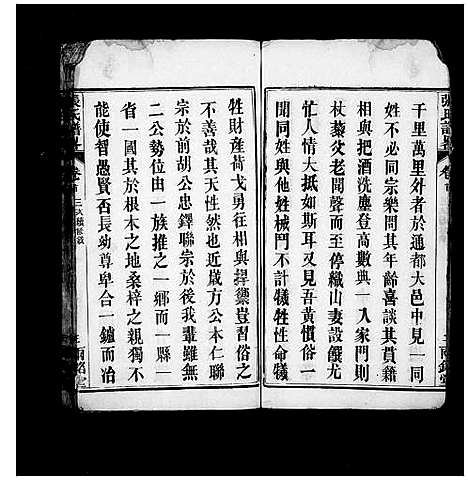 千里萬里外者於通都大邑中見一同
姓不必同宗樂問其年齡喜談其貫籍
相與把酒洗塵登高數典一入家門則
杖藜父老聞聲而至停織山妻設饌尤
忙人情大抵如斯耳又見吾黃慣俗一
聞同姓與他姓械鬥不計犧牲性命犧
牲財產荷戈勇往相與捍禦豈習俗之
不善哉其天性然也近歲方公本仁聯
宗於前胡公忠鐸聯宗於後我輩雖無
二公勢位由一族推之一鄉而一縣一
省一國其於根木之地桑梓之親獨不
能使智愚賢否長幼尊卑合一鑪而冶
張氏譜畧 卷首